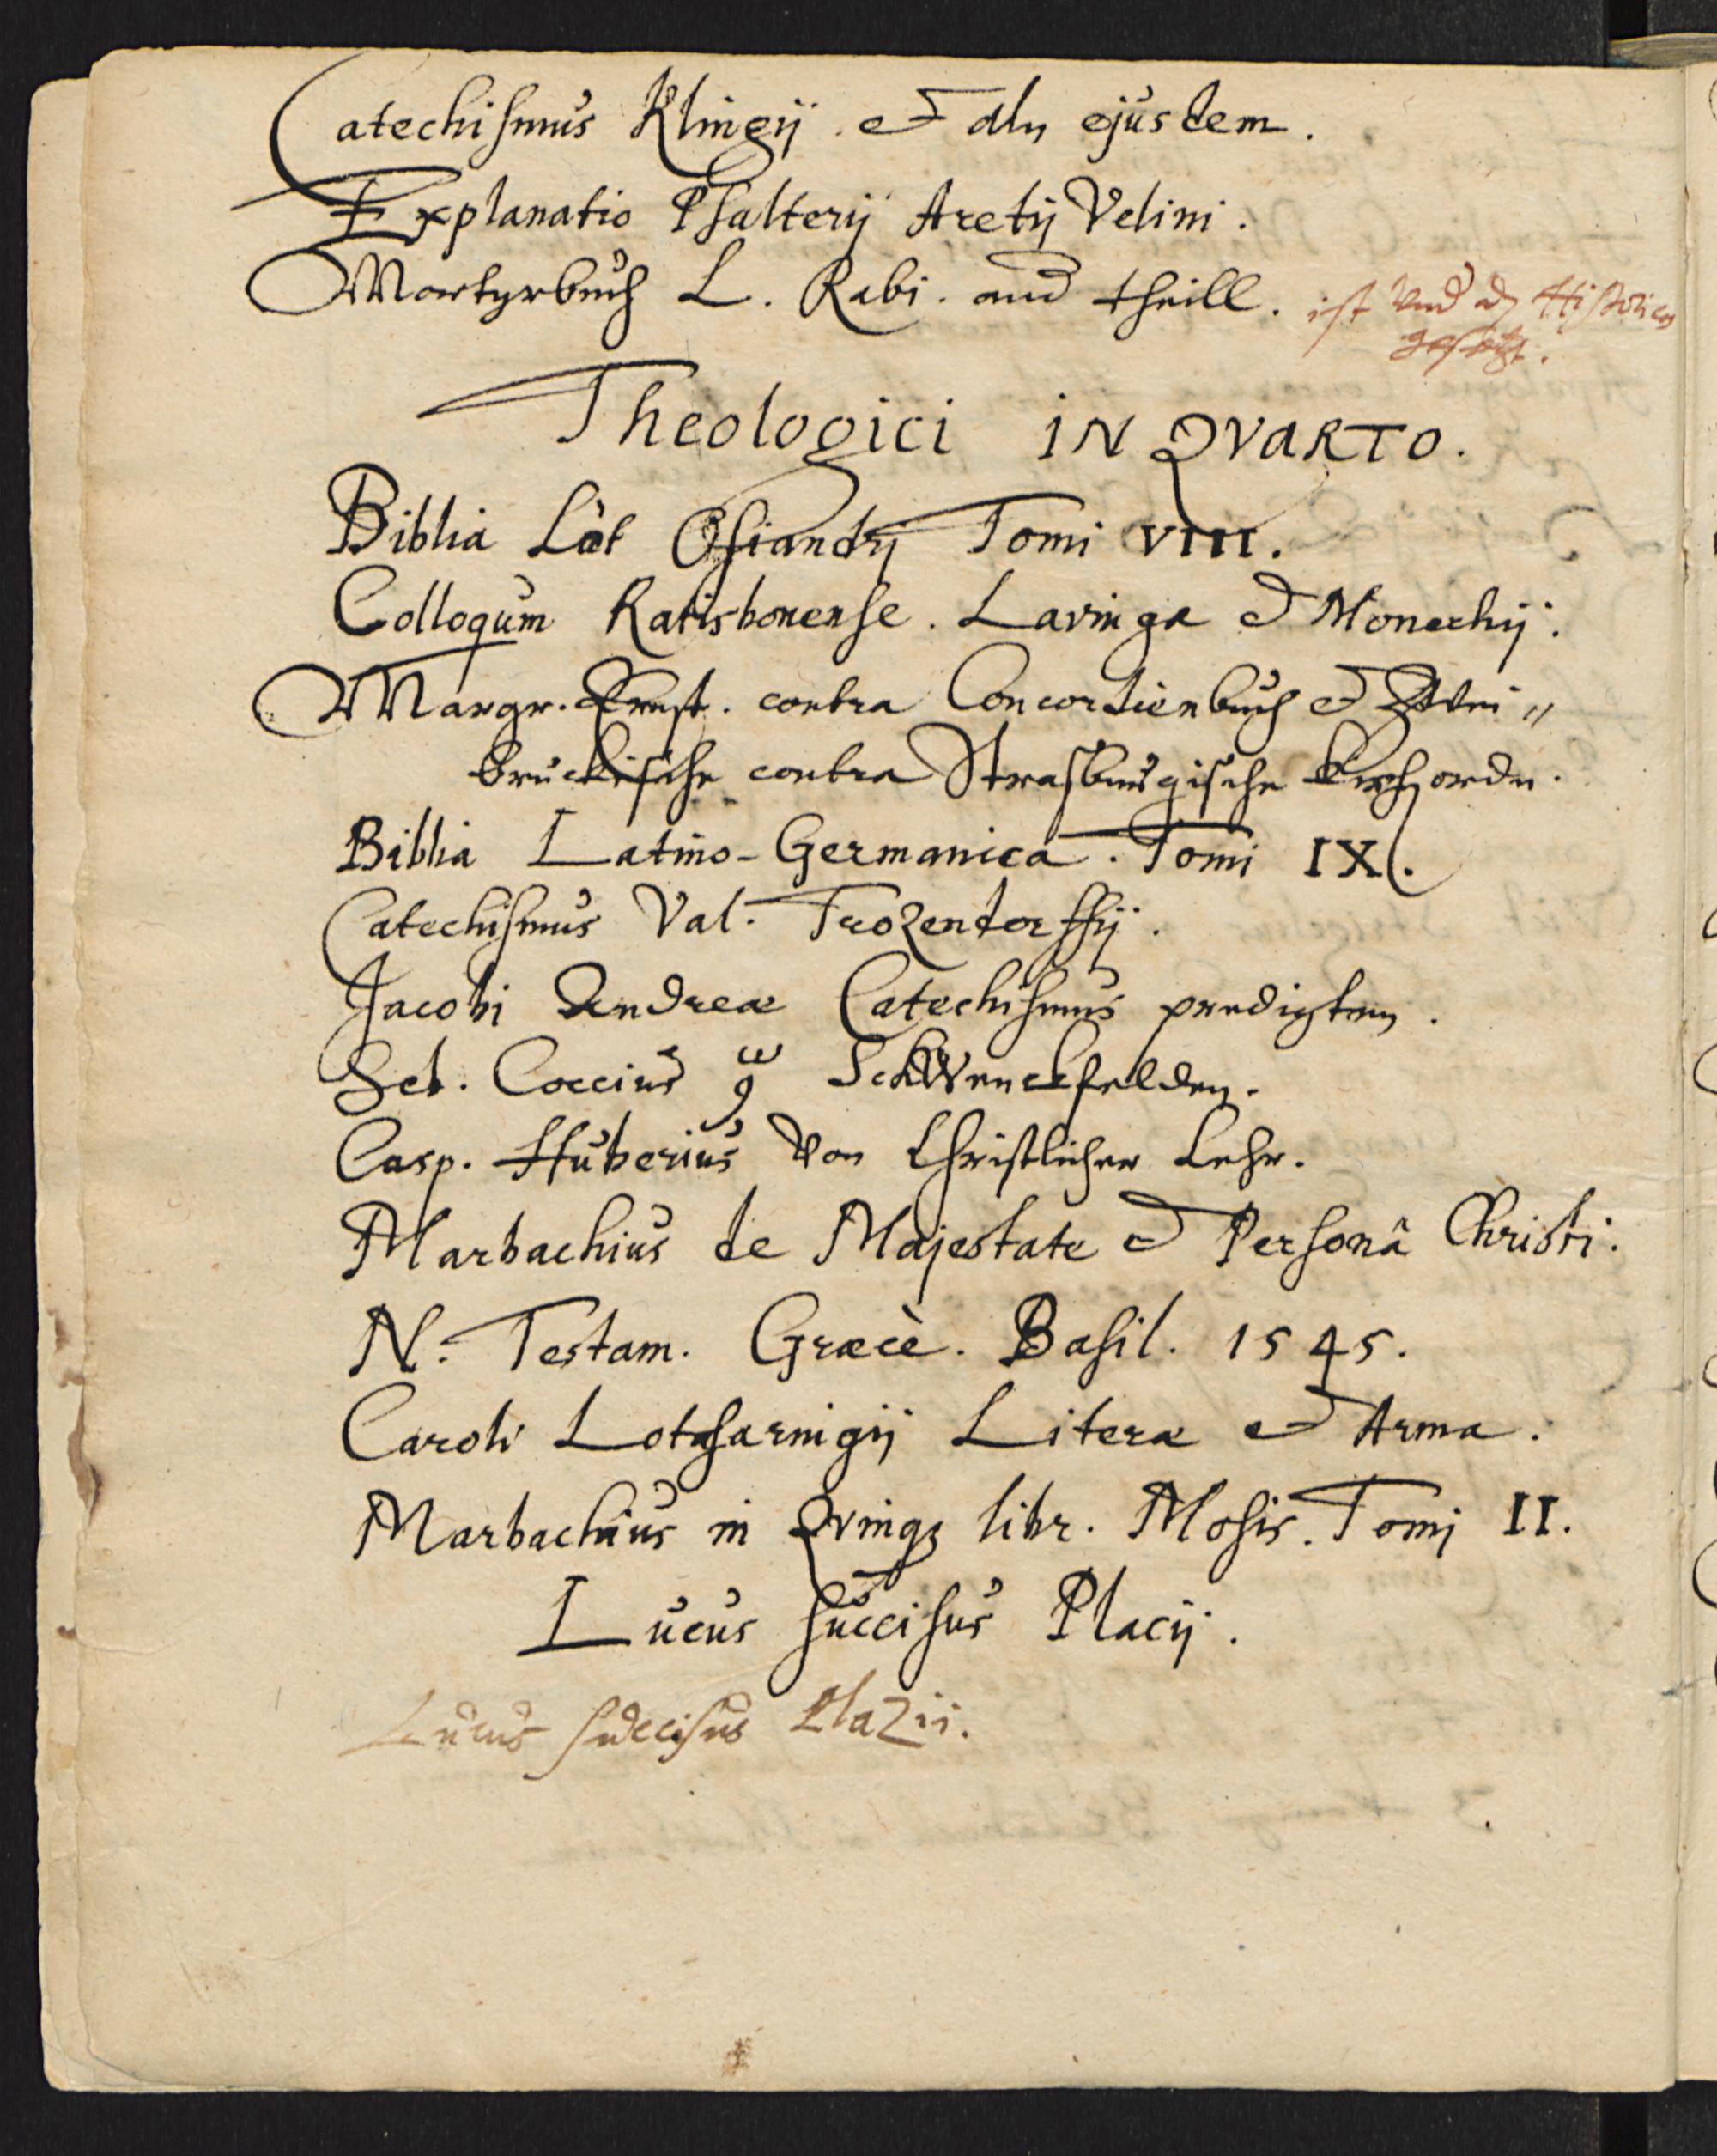 Catechismus Klingij et alij ejusdem.
Explanatio Psalterij Aretij Velini.
Martyrbuch L. Rabi. and theill. ist und dz Historicos
gesetzt.
Theologici IN QVARTO.
Biblia Lat Osiandrj Tomi VIII.
Colloqum Ratisbonense. Lavinga et Monachij.
Margr. Ernst. contra Concordienbuch et Zwei„
bruckische contra Strasburgische Kirchordn.
Biblia Latino-Germanica. Tomi IX.
Catechismus Val. Trozendorffij.
Jacobi Andreæ Catechismus predigten.
Seb. Coccius Schwenckfelden.
Casp. Huberius Von Christlicher Lehr.
Marbachius de Majestate et Personâ Christi.
N. Testam. Græcè. Basil. 1545.
Caroli Lotharingij Literæ et Arma.
Marbachius in Qvinqȝ libr. Mosis. Tomj II.
Lucus succisus Placij.
Lucus succisus Plazii.